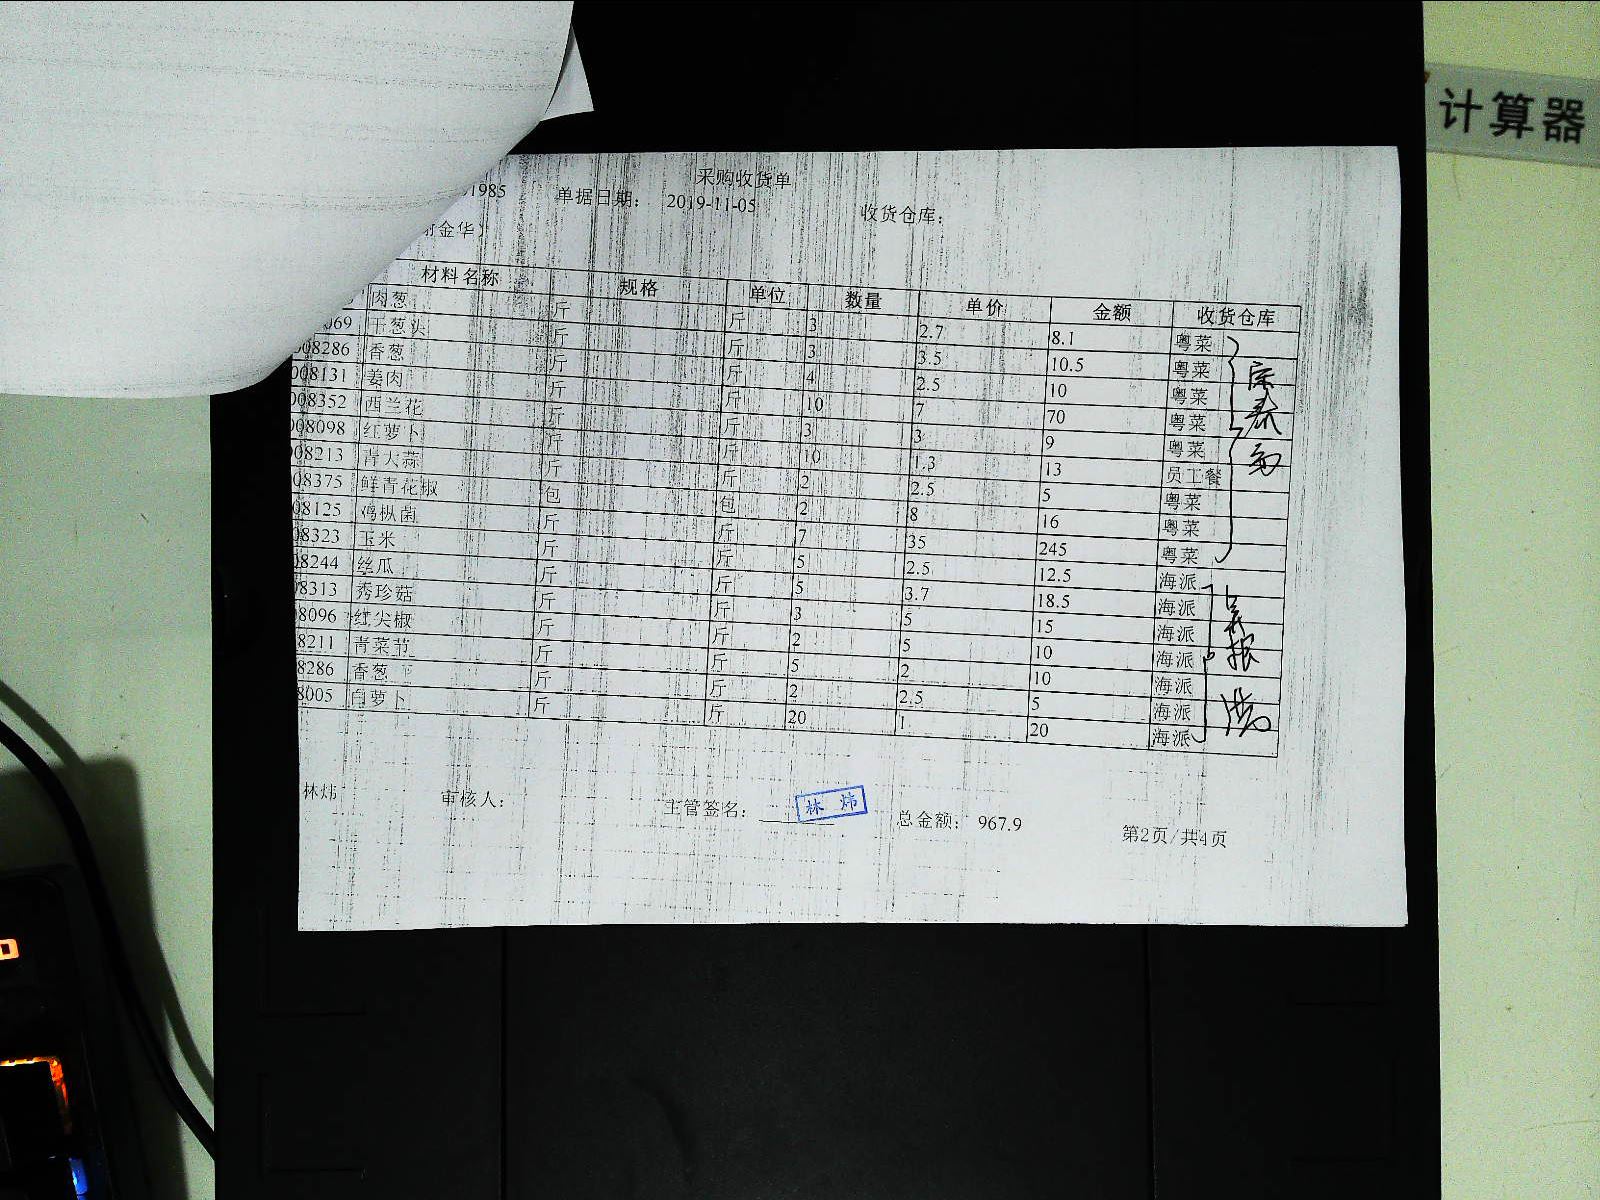 计算器
采购收货单
1985 单据日期： 2019-11-05 收货仓库：
金华）
材料名称 规格 单位 数量 单价 金额 收货仓库
肉葱 斤 斤 3 2.7 8.1 粤菜
069 干葱头 斤 斤 3 3.5 10.5 粤菜
08286 香葱 斤 斤 4 2.5 10 粤菜
008131 姜肉 斤 斤 10 7 70 粤菜
008352 西兰花 斤 斤 3 3 9 粤菜
008098 红萝卜 斤 斤 10 1.3 13 员工餐
08213 青大蒜 斤 斤 2 2.5 5 粤菜
08375 鲜青花椒 包 包 2 8 16 粤菜
08125 鸡枞菌 斤 斤 7 35 245 粤菜
08323 玉米 斤 斤 5 2.5 12.5 海派
08244 丝瓜 斤 斤 5 3.7 18.5 海派
8313 秀珍菇 斤 斤 3 5 15 海派
8096 红尖椒 斤 斤 2 5 10 海派
8211 青菜节 斤 斤 5 2 10 海派
8286 香葱 斤 斤 2 2.5 5 海派
8005 白萝卜 斤 斤 20 1 20 海派
林炜 审核人： 主管签名： 林 炜 总金额： 967.9 第2页/共4页